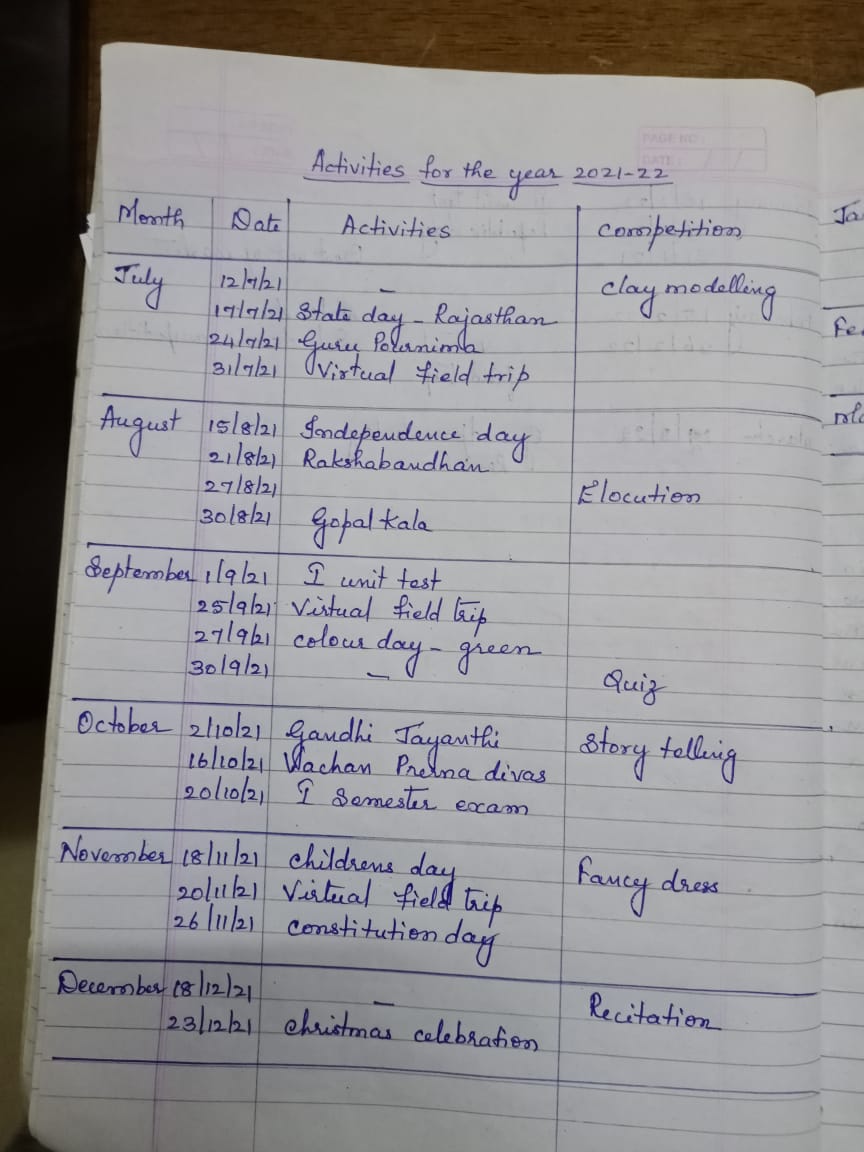 PAGE NO.
DATE:
Activities for the year 2021-22
Month Date Activities Competition
July 12/7/21 – clay modelling
17/7/21 State day - Rajasthan
24/7/21 Guru Polunima
31/7/21 Virtual field trip
August 15/8/21 Independence day
21/8/21 Rakshabandhan
27/8/21 Elocution
30/8/21 Gopal kala
September 1/9/21 I unit test
25/9/21 Virtual field trip
27/9/21 colour day - green
30/9/21 – Quiz
October 2/10/21 Gandhi Jayanthi Story telling
16/10/21 Wachan Prerna divas
20/10/21 I Semester exam
November 18/11/21 childrens day Fancy dress
20/11/21 Virtual field trip
26/11/21 constitution day
December 18/12/21 – Recitation
23/12/21 christmas celebration
Ja
Fe